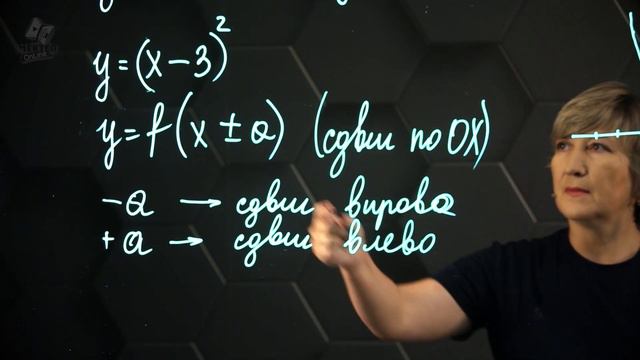 y = (x - 3)²
y = f(x ± a) (сдвиг по OX)
- a → сдвиг вправо
+ a → сдвиг влево